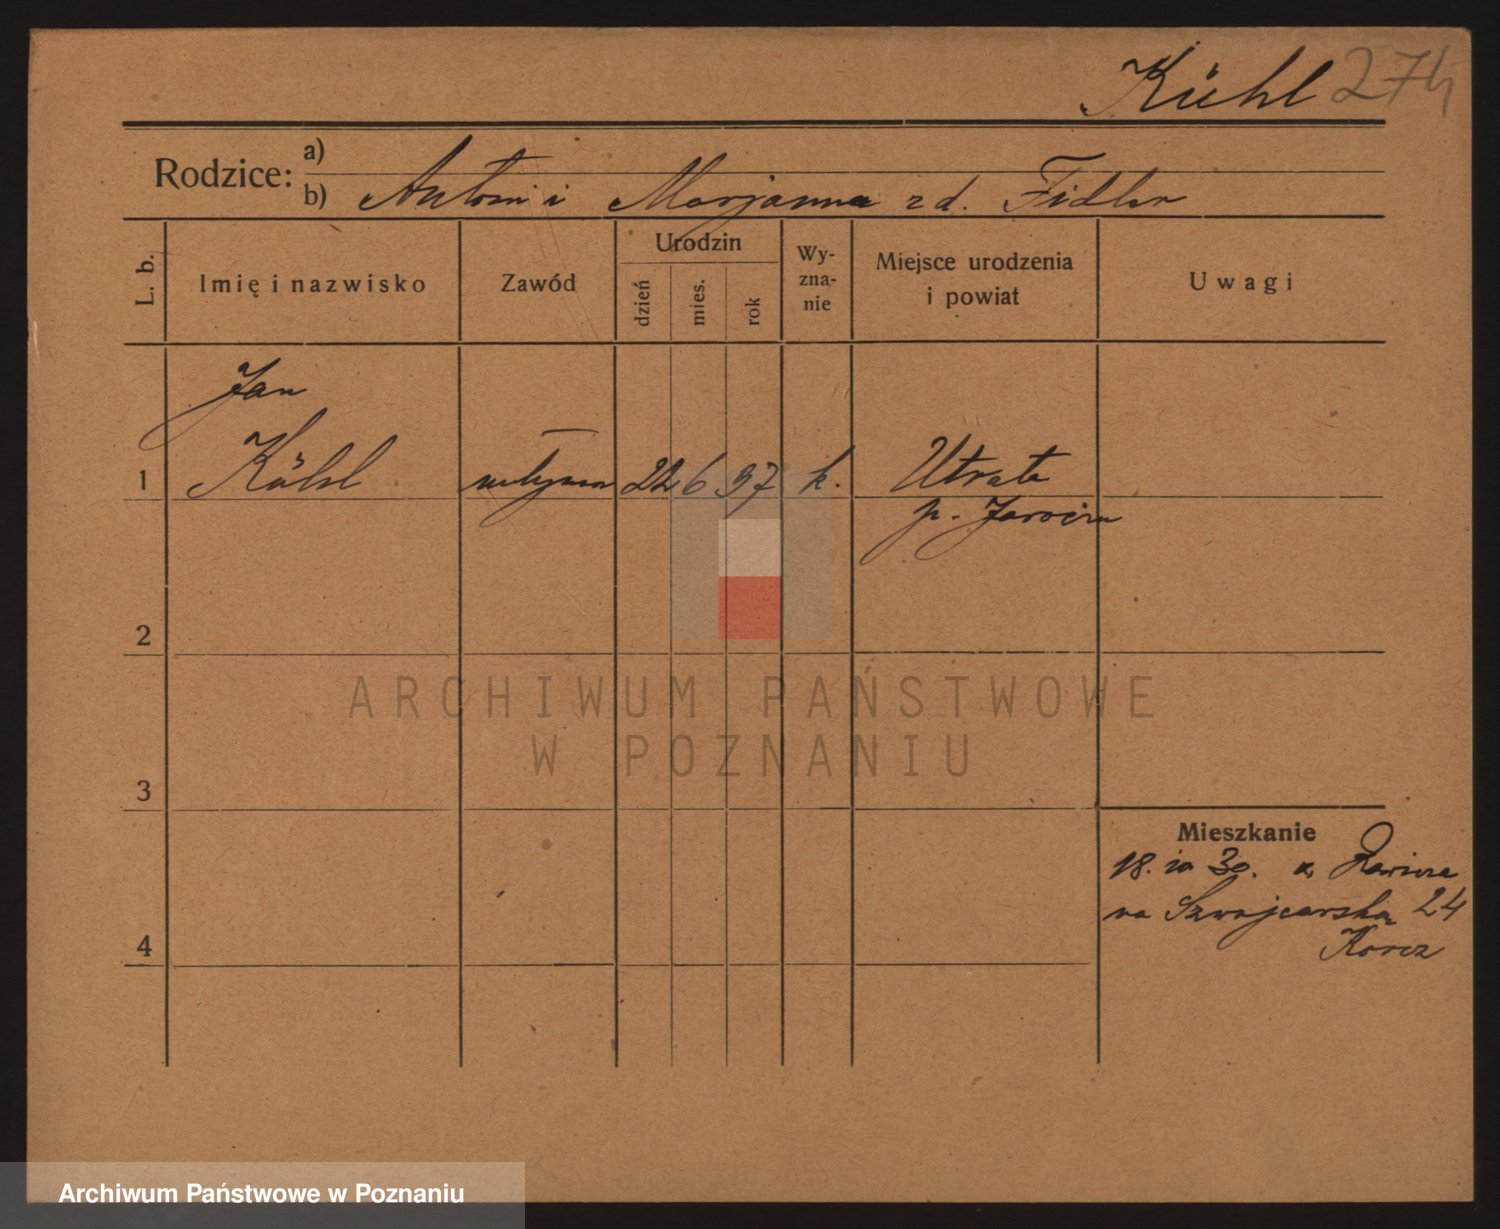 Kühl 274
Rodzice:
a)
b) Antoni i Marjanna z d. Fidler
L. b.
Imię i nazwisko
Zawód
Urodzin
dzień
mies.
rok
Wy-
zna-
nie
Miejsce urodzenia
i powiat
Uwagi
Jan
1 Kühl
22 6 97 k. Utrata
p. Jarocin
2
3
4
Mieszkanie
18. 10 30. z
na Szwajcarska 24
Korcz
ARCHIWUM PAŃSTWOWE
W POZNANIU
Archiwum Państwowe w Poznaniu